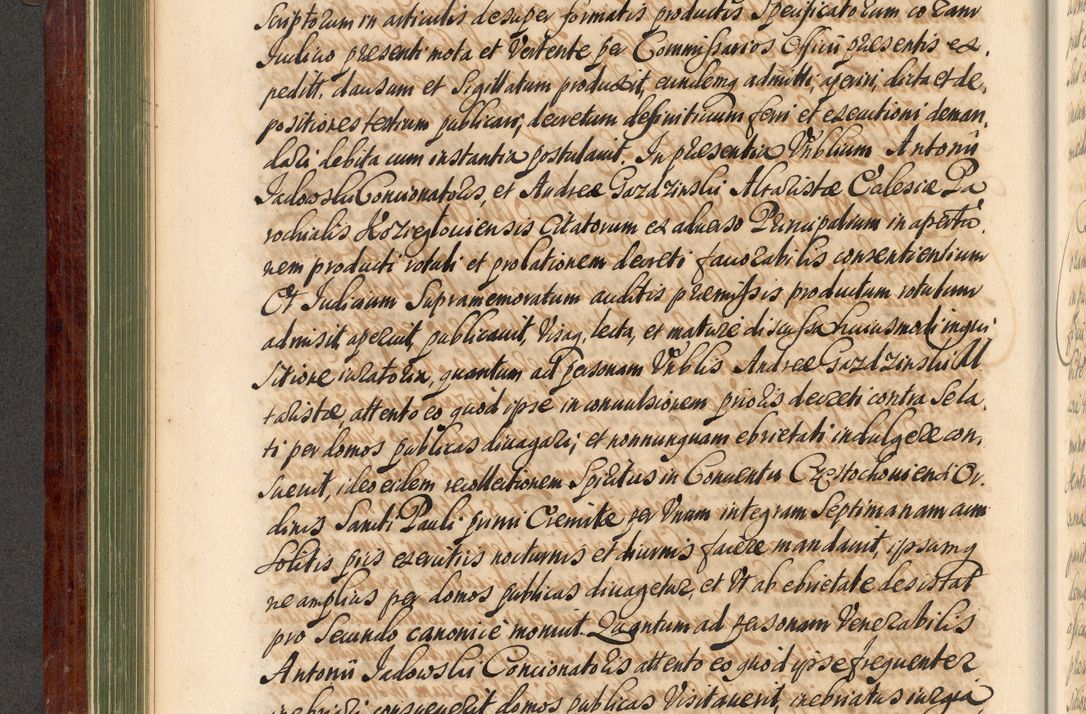 Scriptorum in articulis desuper formatis productis Specificatorum coram
Iudicio præsenti mota et Vertente per Commissarios Officii præsentis ex,
peditt. clausum et Sigillatum produxit, eundemq admitti, aperiri, dicta et de,
positiones testium publicari, decretum definitivum ferri et executioni deman,
dari debita cum instantia postulavit. In præsentia Vnblium Antonii
Jadowski Concionatoris, et Andreæ Gazdzinski Altaristæ Ecclesiæ Pa
rochialis Kozieglouiensis Citatorum ex adverso Principalium in apertu
nem producti rotuli et prolationem decreti favorabilis consentientium
Et Iudicium Supramemoratum auditis præmissis productum rotulum
admisit, aperuit, publicavit, Visaq, lecta, et mature discussa huiusmodi inqui
sitione iuratoria, quantum ad personam Vnblis Andreæ Gazdzinski Al
taristæ attento eo quod ipse in convulsionem prioris decreti contra Se la,
ti per domos publicas divagari, et nonnunquam ebrietati indulgere con,
suevit, ideo eidem recollectionem Spiritus in Conventu Częstochoviensi Or,
dinis Sancti Pauli primi Eremitæ per Vnam integram Septimanam cum
Solitis piis exercitiis nocturnis et diurnis facere mandavit, ipsumq
ne amplius per domos publicas divagetur, et Vt ab ebrietate desistat
pro Secundo canonice monuit. Quantum ad personam Venerabilis
Antonii Jadowski Concionatoris attento eo quod ipse frequenter
inebriari consueverit domos publicas Visitaverit, inebriatus iurgia